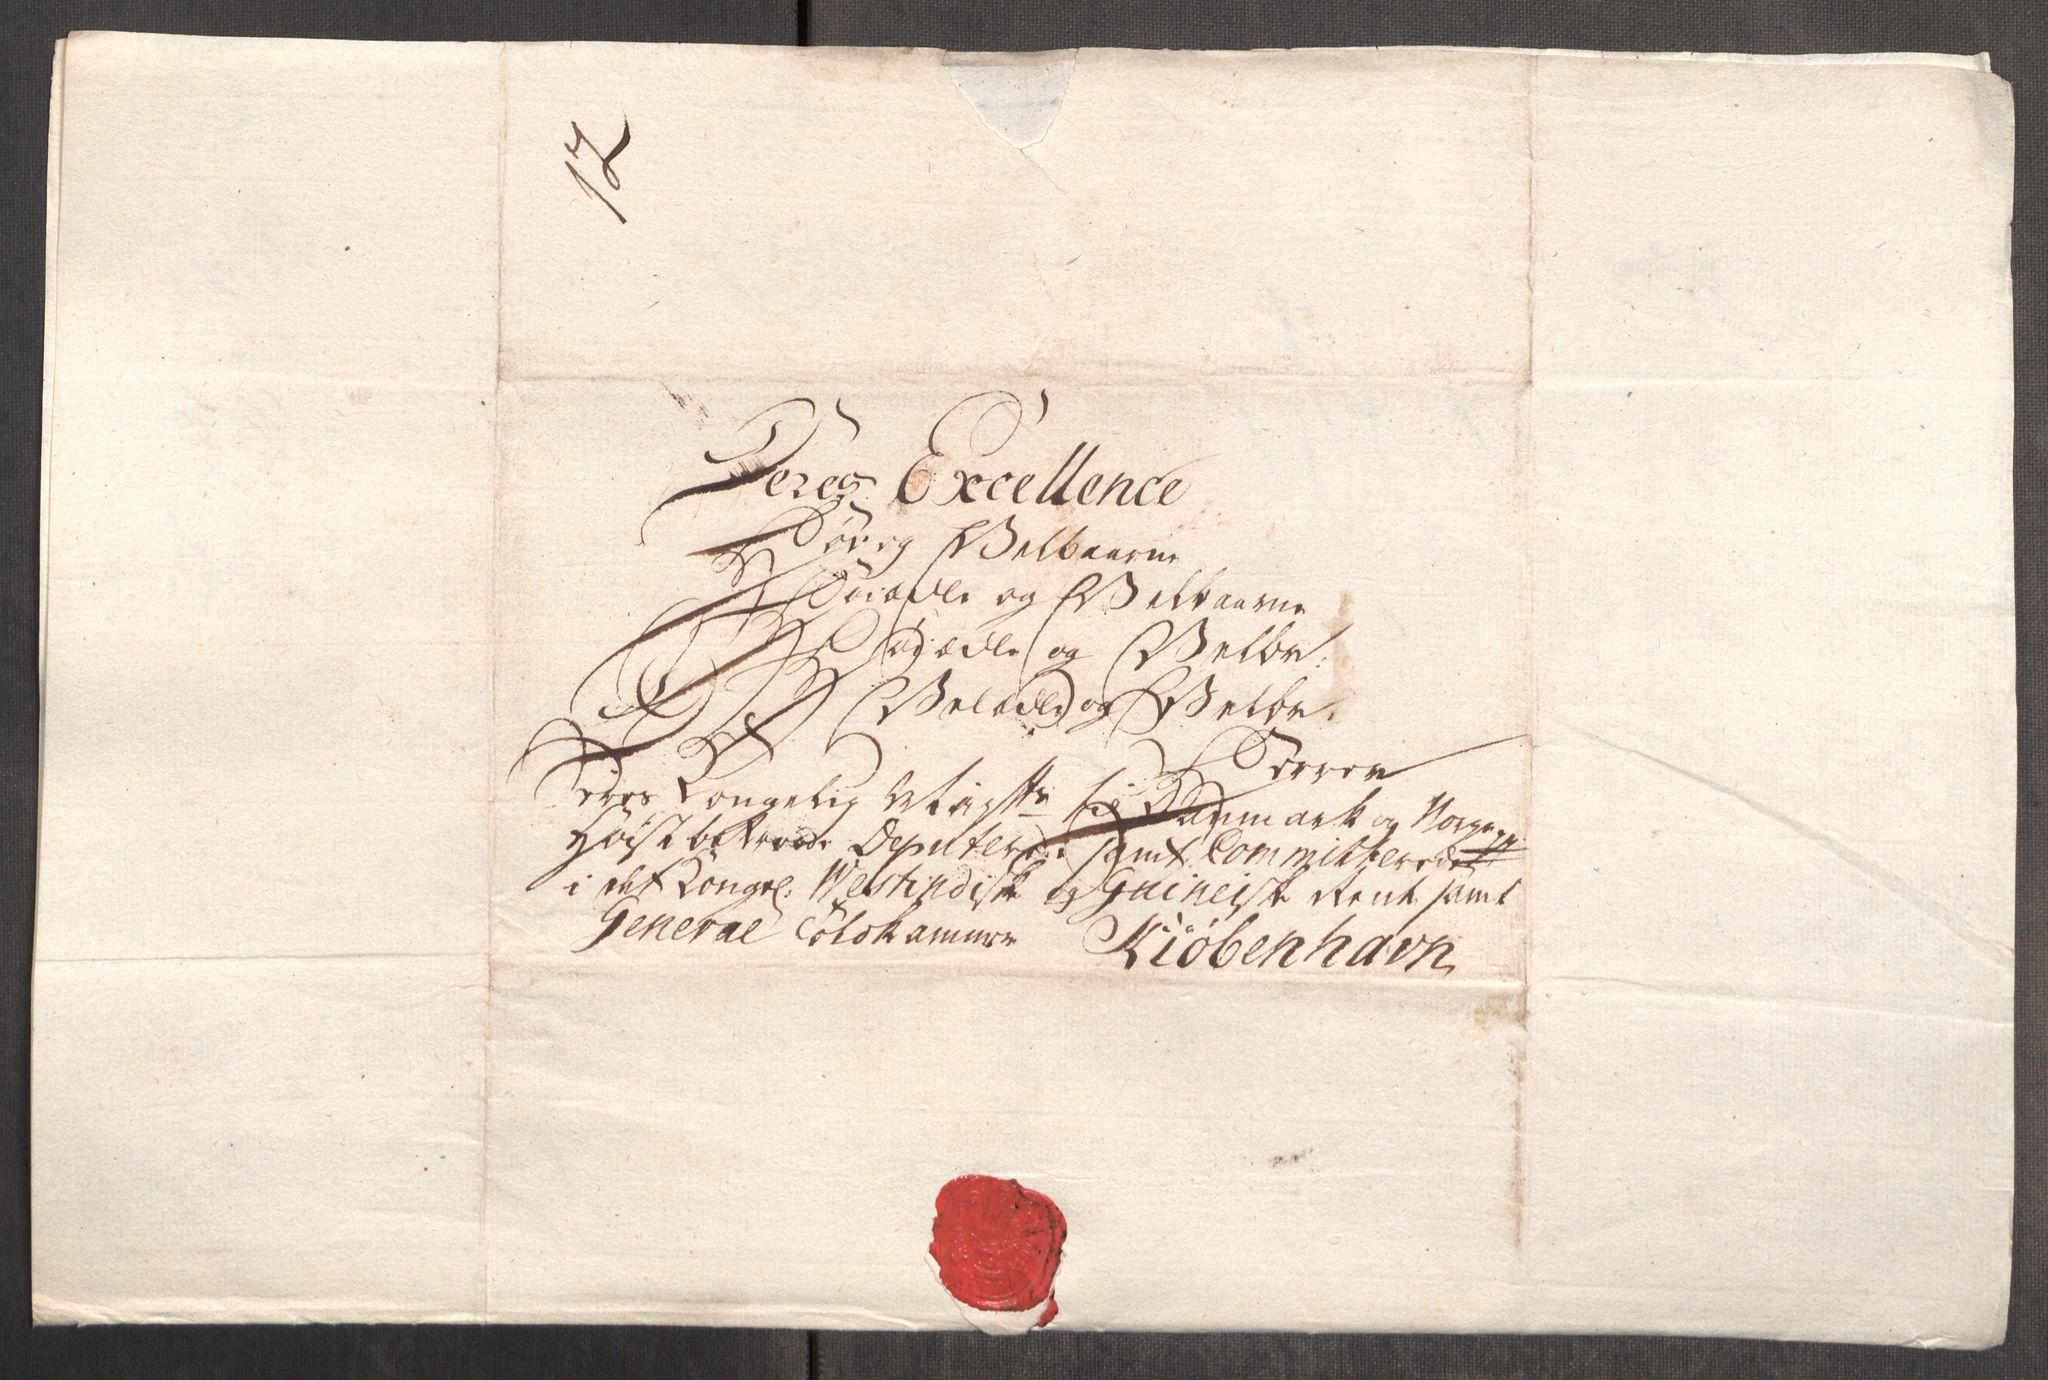 12
Deres Excellence
Høy og Velbaarne
Høiædle og Velbaarne
Høyædle og Velbr:
Velædle og Velbr:
Herrer
Deres Kongelig Mayts til Danmark og Norge pp
Høist betroede Deputerede samt Committerede
i det Kongel: Westindisk og Guineisk Rente samt
General Toldkammer Kiøbenhavn